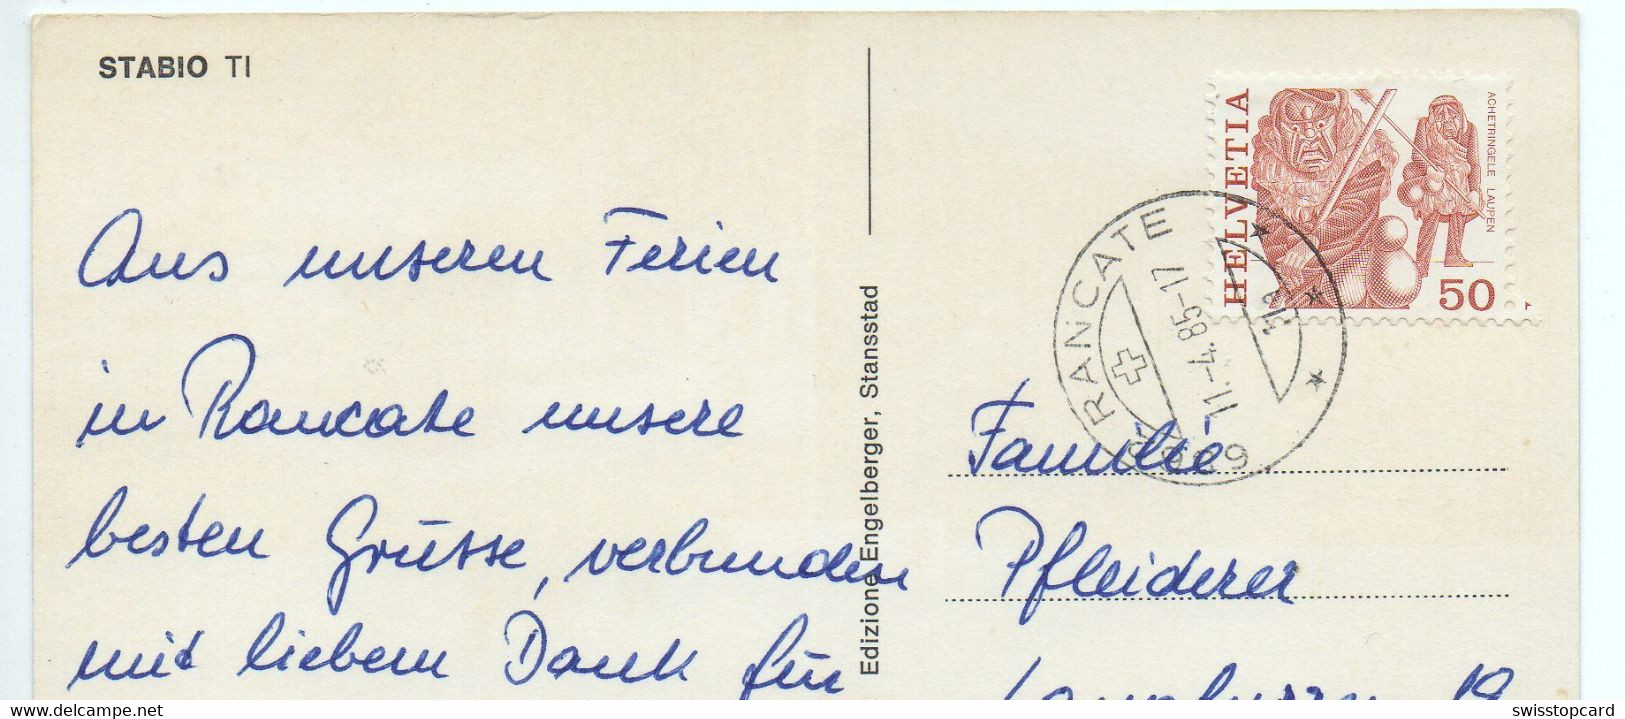 STABIO TI
Aus unseren Ferien
in Rancate unsere
besten Grüsse, verbunden
mit liebem Dank für
Edizione Engelberger, Stansstad
HELVETIA
ACHETRINGELE LAUPEN
50
RANCATE
11.-4.85-17
Familie
Pfleiderer
18
www.delcampe.net
swisstopcard